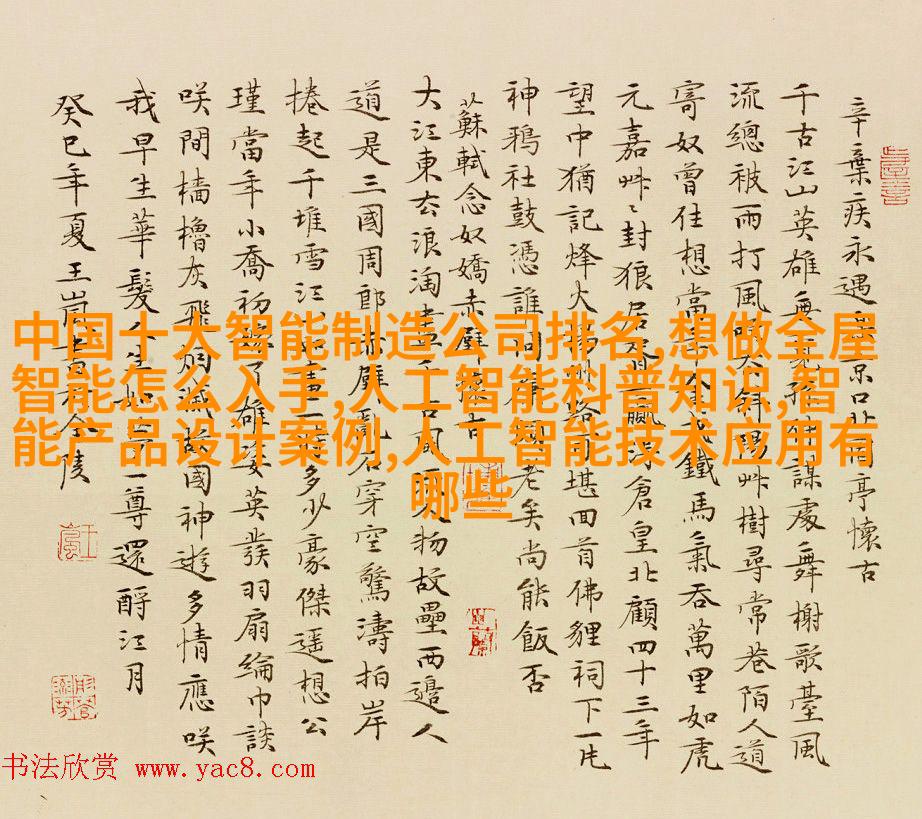 辛棄疾永遇樂京口北固亭懷古
千古江山英雄無覓孫仲謀處舞榭歌臺風
流總被雨打風吹去斜陽艸樹尋常巷陌人道
寄奴曾住想當年金戈鐵馬氣吞萬里如虎
元嘉艸〻封狼居胥贏得倉皇北顧四十三年
望中猶記烽火揚州路可堪回首佛貍祠下一片
神鴉社鼓憑誰問廉頗老矣尚能飯否
蘇軾念奴嬌赤壁懷古
大江東去浪淘盡千古風流人物故壘西邊人
道是三國周郎赤壁亂石穿空驚濤拍岸
捲起千堆雪江山如畫一時多少豪傑遙想公
瑾當年小喬初嫁了雄姿英發羽扇綸巾談
咲間檣櫓灰飛烟滅故國神遊多情應咲
我早生華髮人生如夢一尊還酹江月
癸巳年夏王嵐書於金陵
中国十大智能制造公司排名,想做全屋
智能怎么入手,人工智能科普知识,智
能产品设计案例,人工智能技术应用有
哪些
书法欣赏 www.yac8.com